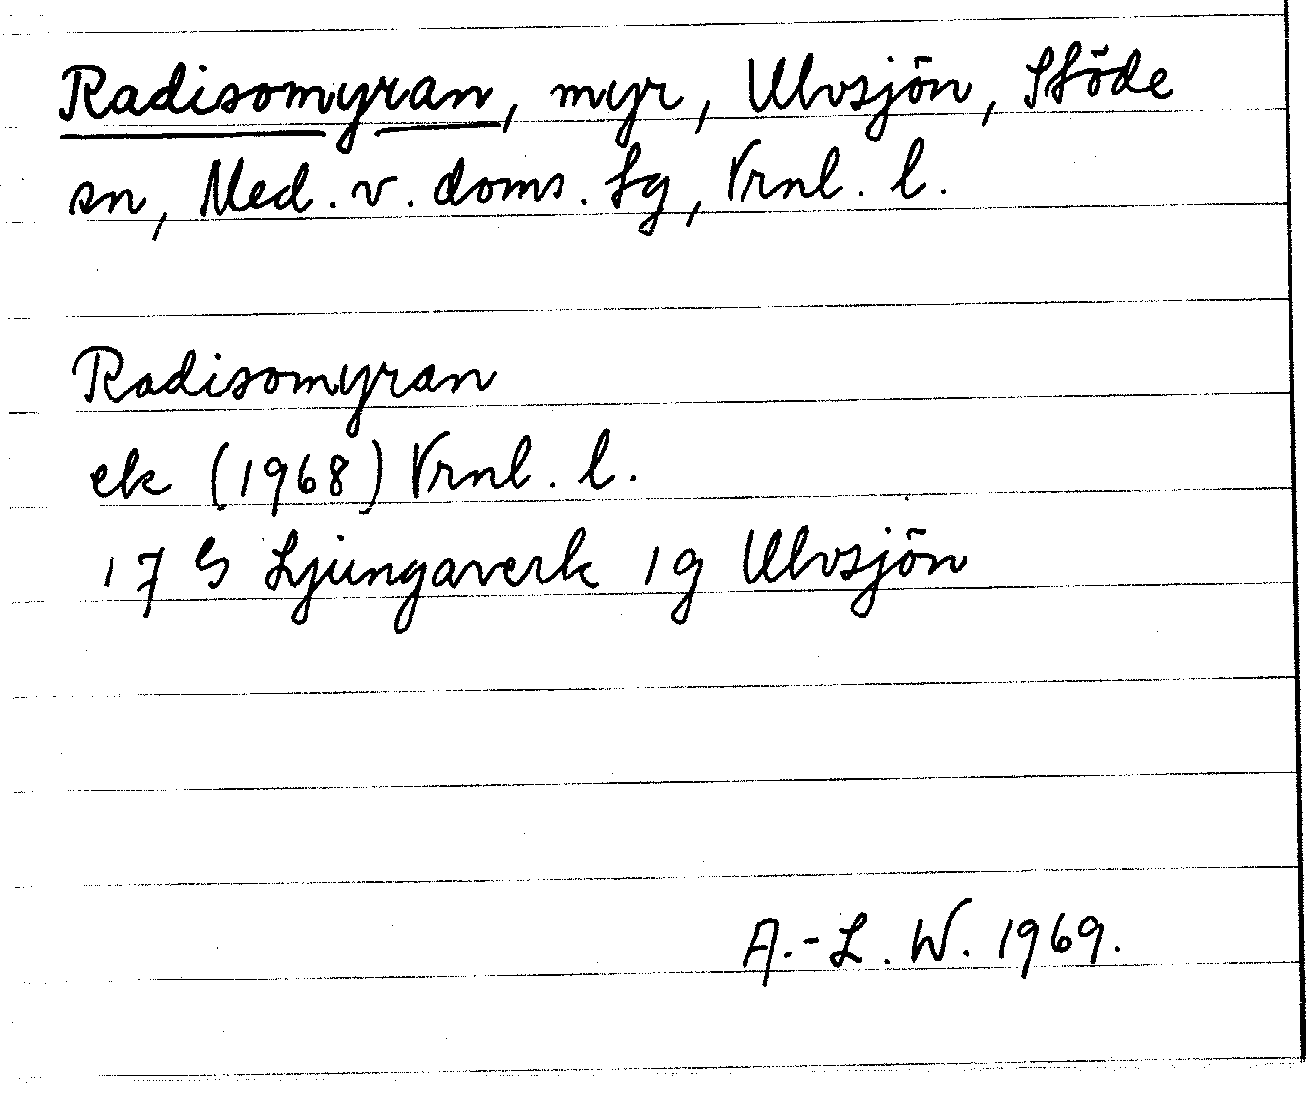 Radisomyran, myr, Ulvsjön, Stöde
sn, Med. v. doms. lg, Vrnl. l.
Radisomyran
ek (1968) Vrnl. l.
17 G Ljungaverk 1g Ulvsjön
A.-L. W. 1969.